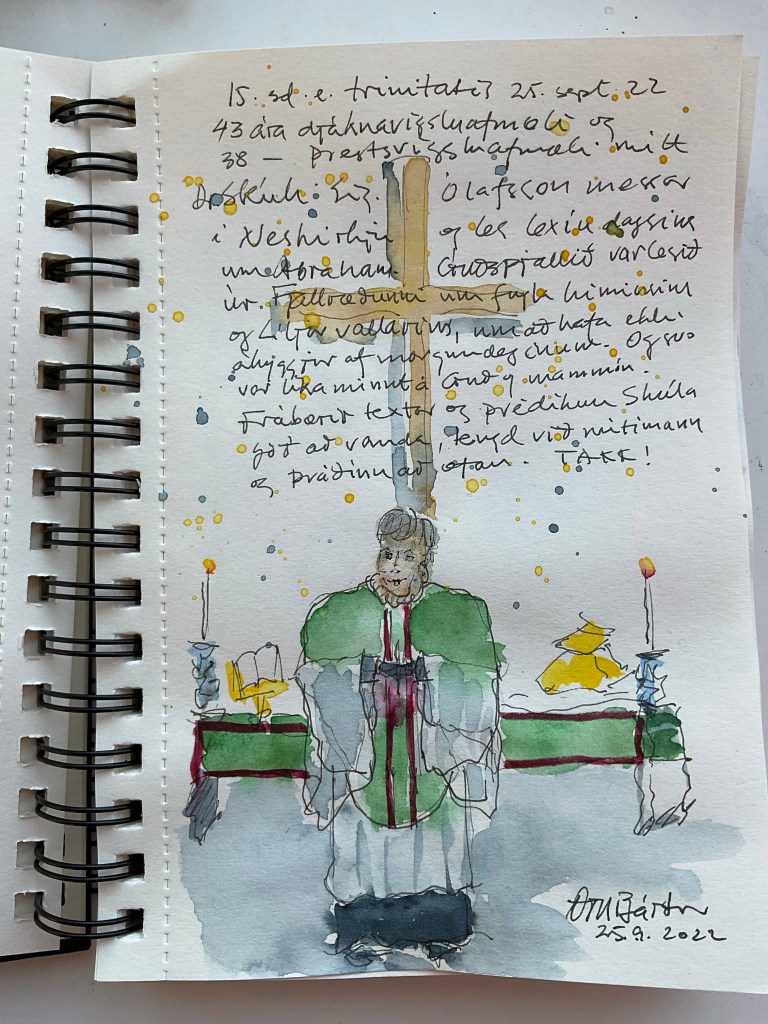 15. sd. e. trinitatis 25. sept. 22
43 ára djáknavígsluafmæli og
38 – prestsvígsluafmæli mitt
Dr. Skúli Ólafsson messar
í Neskirkju og les lexíu dagsins
um Abraham. Guðspjallið var lesið
úr Fjallræðunni um fugla himinsins
og liljur vallarins, um að hafa ekki
áhyggjur af morgundeginum. Og svo
var líka minnt á Guð og mammón.
Frábærir textar og prédikun Skúla
góð að vanda, tengd við nútímann
og þráðinn að ofan. TAKK!
25.9. 2022